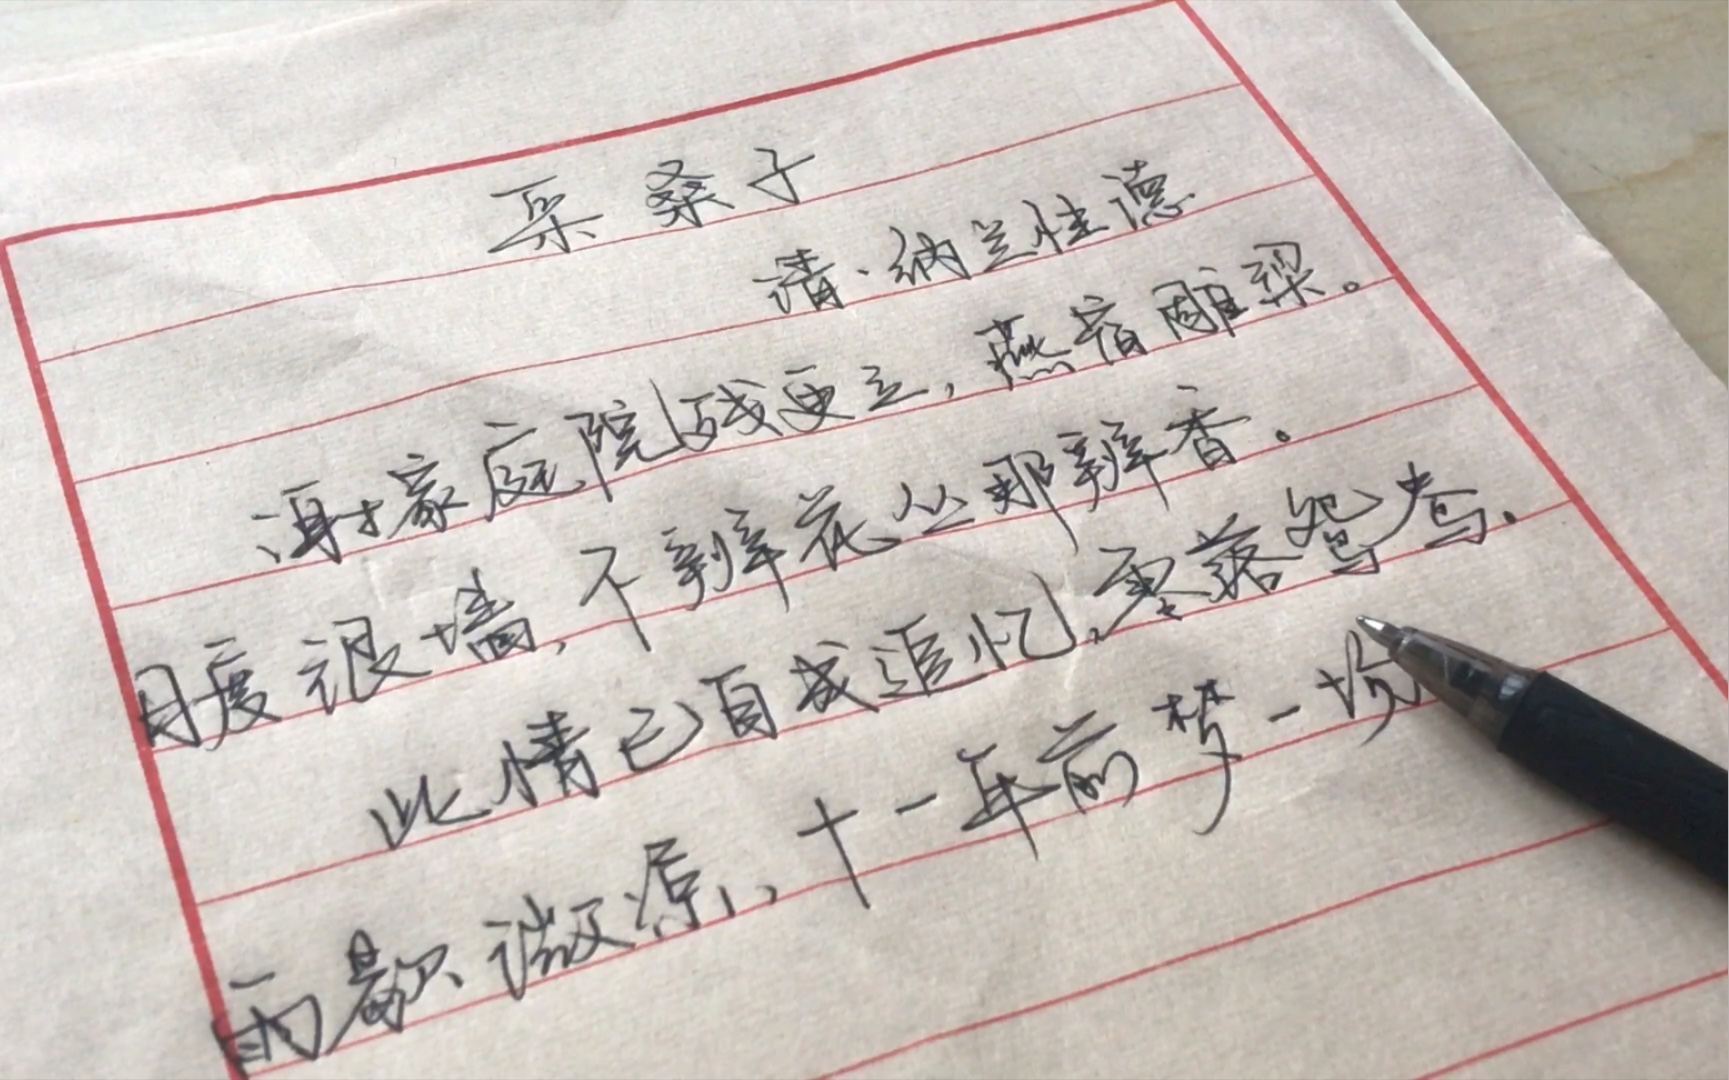 采桑子
清·纳兰性德
谢家庭院残更立，燕宿雕梁。
月度银墙，不辨花丛那辨香。
此情已自成追忆，零落鸳鸯。
雨歇微凉，十一年前梦一场